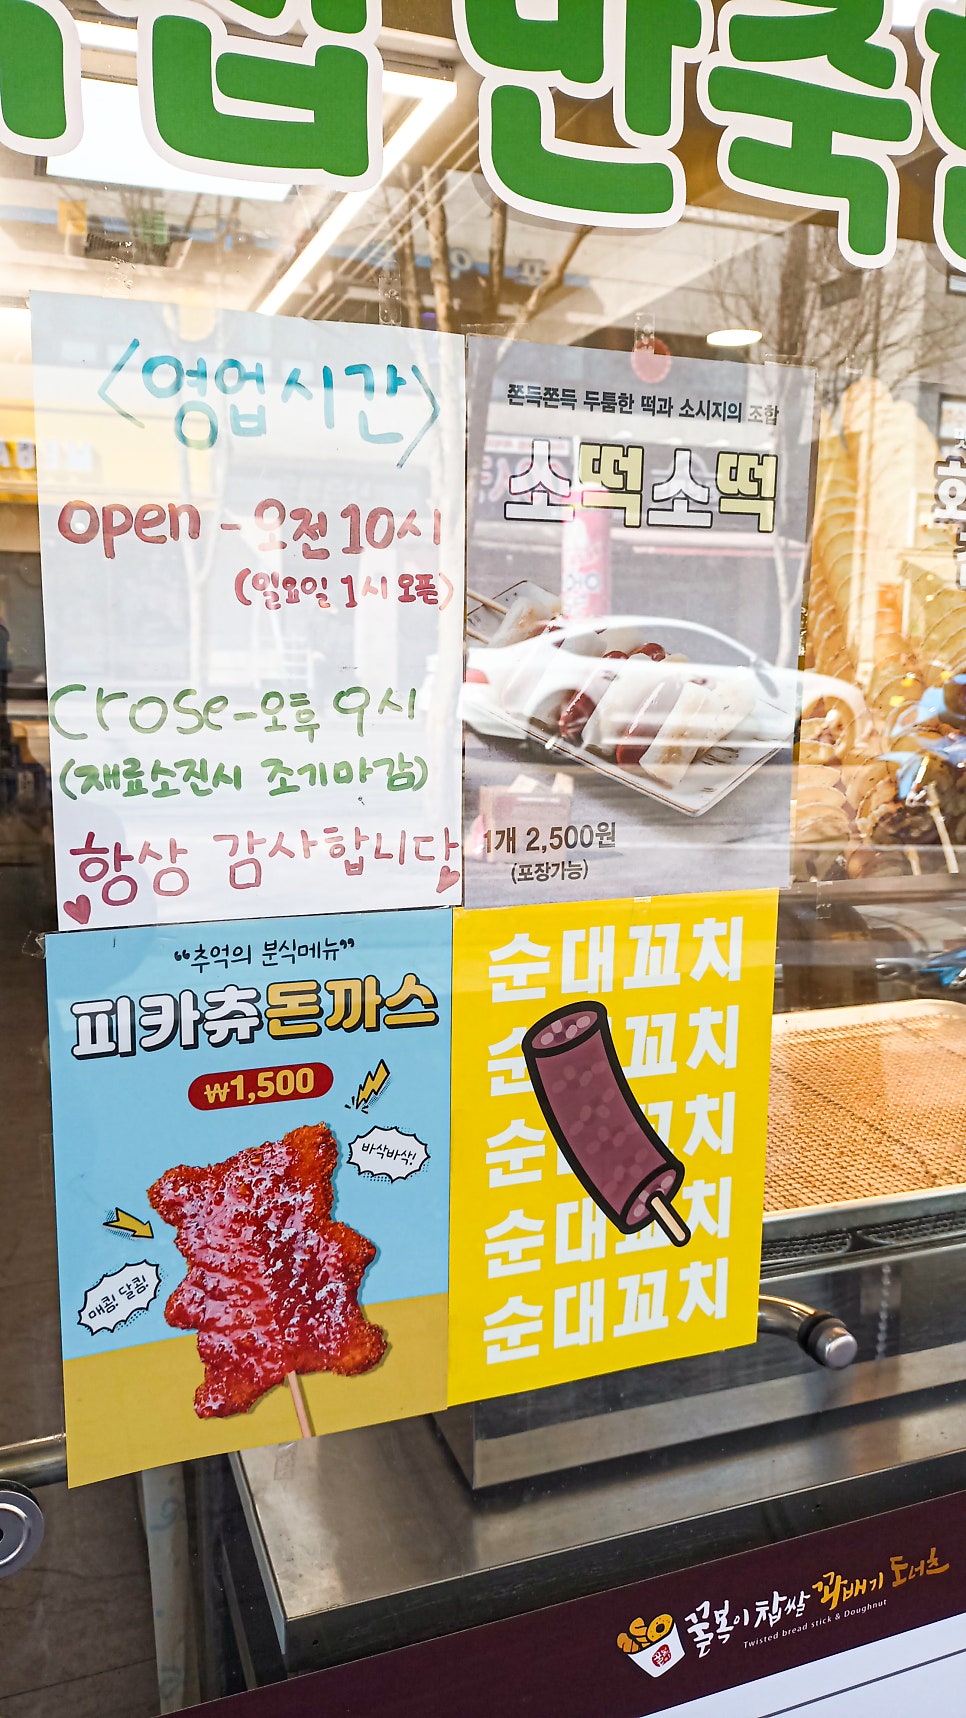 만주
<영업시간>
open - 오전 10시
(일요일 1시 오픈)
Crose - 오후 9시
(재료소진시 조기마감)
항상 감사합니다
쫀득쫀득 두툼한 떡과 소시지의 조합
소떡소떡
1개 2,500원
(포장가능)
“추억의 분식메뉴”
피카츄돈까스
₩1,500
바삭바삭!
매콤! 달콤!
순대꼬치
순 꼬치
순 꼬치
순대꼬치
순대꼬치
꿀복이 찹쌀 꽈배기 도너츠
Twisted bread stick & Doughnut